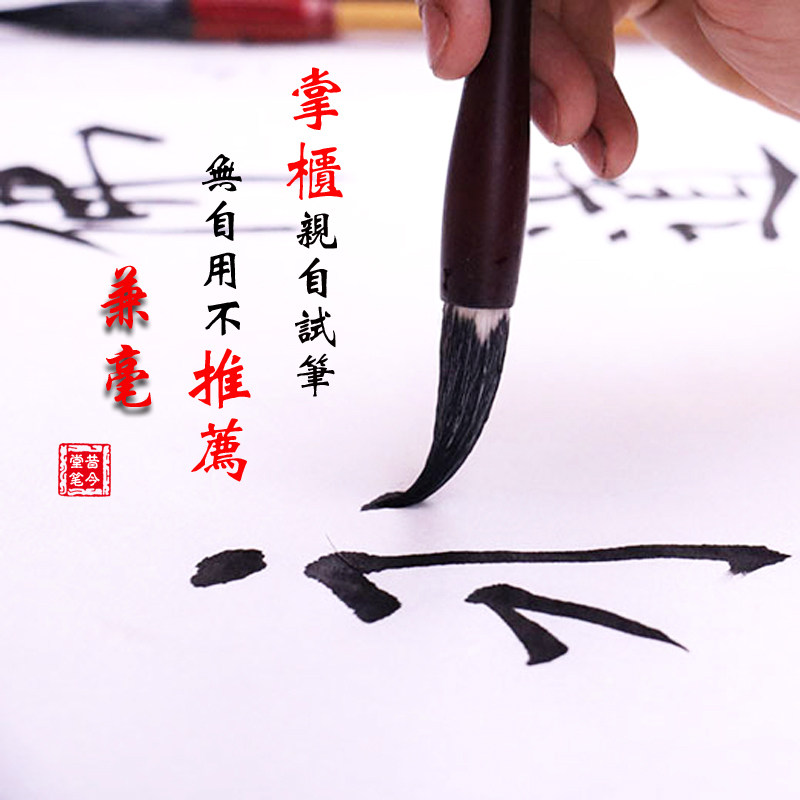 掌櫃親自試筆
無自用不推薦
兼毫
昔今
堂笔